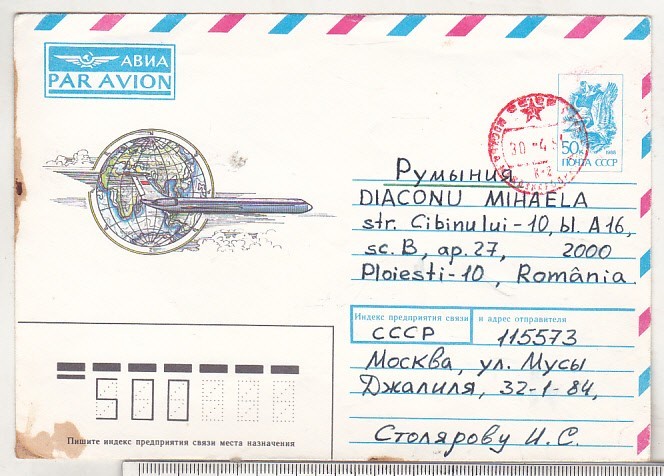 АВИА
PAR AVION
МОСКВА
30 -4 9
К-2
50к
1988
ПОЧТА СССР
Румыния
DIACONU MIHAELA
str. Cibinului-10, bl. A16,
sc. B, ap. 27, 2000
Ploiesti-10, România
Индекс предприятия связи и адрес отправителя
СССР 115573
Москва, ул. Мусы
Джалиля, 32-1-84,
Столярову И. С.
500
Пишите индекс предприятия связи места назначения